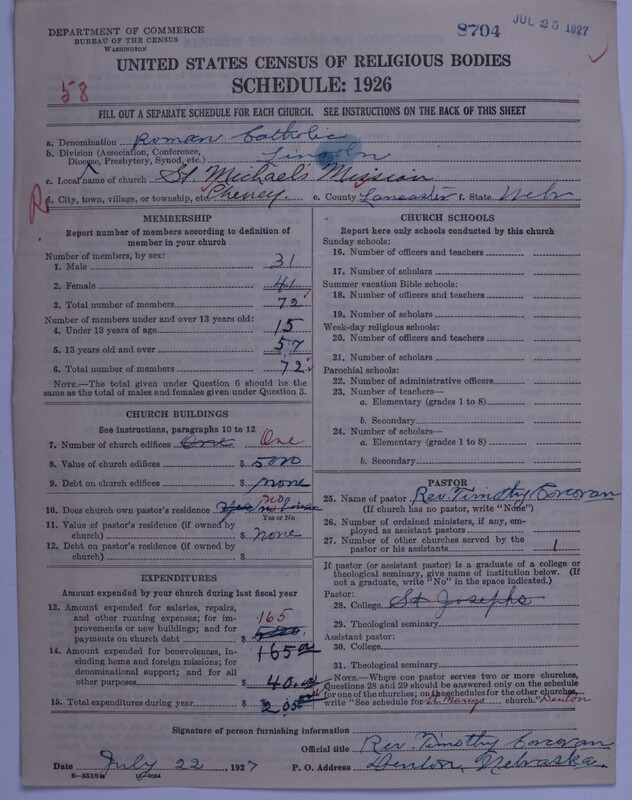 DEPARTMENT OF COMMERCE
BUREAU OF THE CENSUS
WASHINGTON
8704
JUL 25 1927
UNITED STATES CENSUS OF RELIGIOUS BODIES
SCHEDULE: 1926
58
FILL OUT A SEPARATE SCHEDULE FOR EACH CHURCH. SEE INSTRUCTIONS ON THE BACK OF THIS SHEET
a. Denomination Roman Catholic
b. Division (Association, Conference, Diocese, Presbytery, Synod, etc.) Lincoln
c. Local name of church St. Michaels Mission
d. City, town, village, or township, etc. Cheney. e. County Lancaster f. State Neb
MEMBERSHIP
Report number of members according to definition of
member in your church
Number of members, by sex:
1. Male 31
2. Female 41
3. Total number of members 72
Number of members under and over 13 years old:
4. Under 13 years of age 15
5. 13 years old and over 57
6. Total number of members 72
NOTE.—The total given under Question 6 should be
same as the total of males and females given under Question 3.
CHURCH BUILDINGS
See instructions, paragraphs 10 to 12
7. Number of church edifices One One
8. Value of church edifices $ 500
9. Debt on church edifices $ none
10. Does church own pastor's residence no
Yes or No
11. Value of pastor's residence (if owned by
church) $ none
12. Debt on pastor's residence (if owned by
church) $
EXPENDITURES
Amount expended by your church during last fiscal year
13. Amount expended for salaries, repairs,
and other running expenses; for im-
provements or new buildings; and for
payments on church debt $ 165
14. Amount expended for benevolences, in-
cluding home and foreign missions; for
denominational support; and for all
other purposes $ 165 40.00
15. Total expenditures during year $ 205
CHURCH SCHOOLS
Report here only schools conducted by this church
Sunday schools:
16. Number of officers and teachers
17. Number of scholars
Summer vacation Bible schools:
18. Number of officers and teachers
19. Number of scholars
Week-day religious schools:
20. Number of officers and teachers
21. Number of scholars
Parochial schools:
22. Number of administrative officers
23. Number of teachers—
a. Elementary (grades 1 to 8)
b. Secondary
24. Number of scholars—
a. Elementary (grades 1 to 8)
b. Secondary
PASTOR
25. Name of pastor Rev. Timothy Corcoran
(If church has no pastor, write "None")
26. Number of ordained ministers, if any, em-
ployed as assistant pastors
27. Number of other churches served by the
pastor or his assistants 1
If pastor (or assistant pastor) is a graduate of a college or
theological seminary, give name of institution below. (If
not a graduate, write "No" in the space indicated.)
Pastor:
28. College St Josephs
29. Theological seminary
Assistant pastor:
30. College
31. Theological seminary
NOTE.—Where one pastor serves two or more churches,
Questions 28 and 29 should be answered only on the schedule
for one of the churches; on the schedules for the other churches,
write "See schedule for St Marys church." Denton
Signature of person furnishing information
Official title Rev. Timothy Corcoran
Date July 22, 1927 P. O. Address Denton, Nebraska.